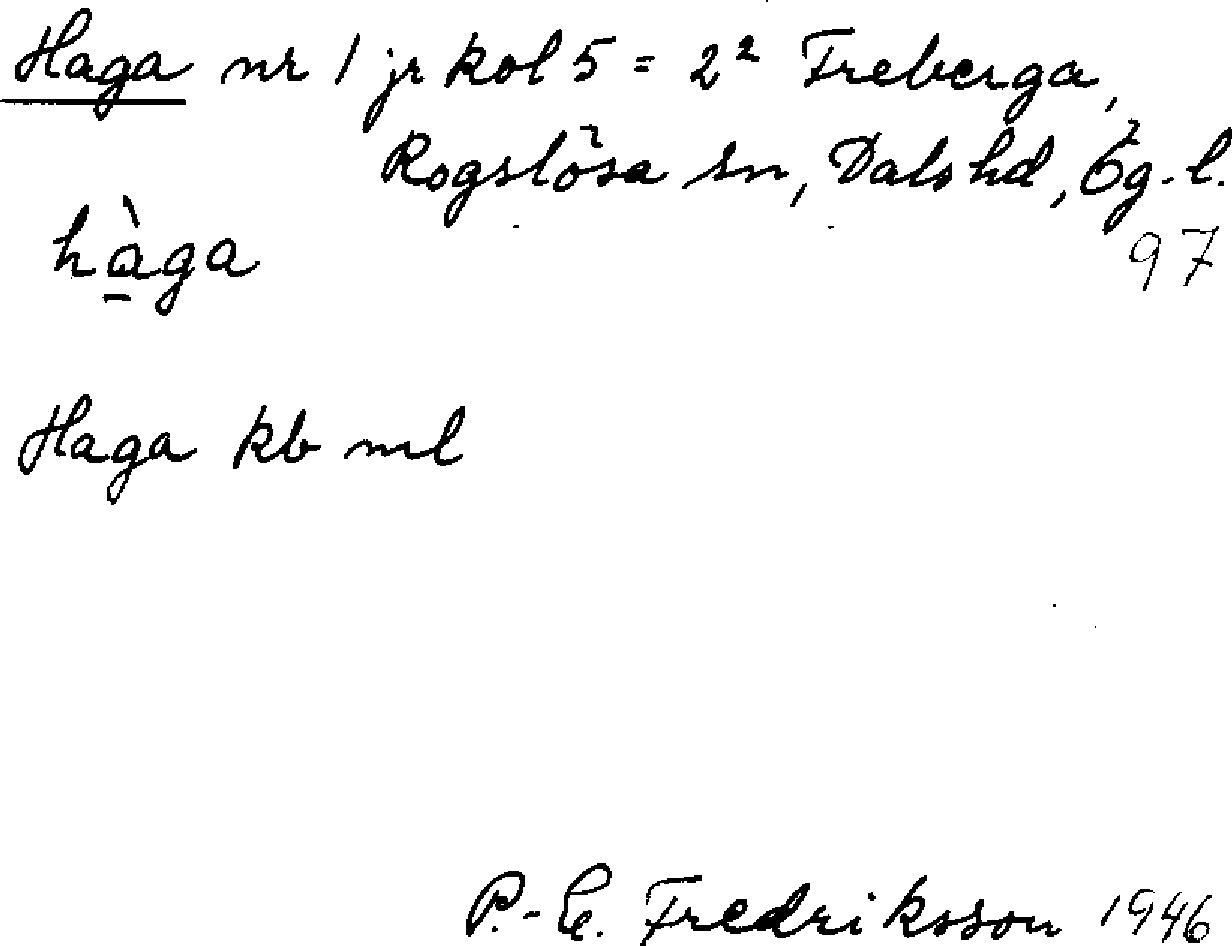 Haga nr 1 jr kol 5 = 2² Treberga,
Rogslösa sn, Dals hd, Ög. l.
hàga 97
Haga kb ml
P.-E. Fredriksson 1946